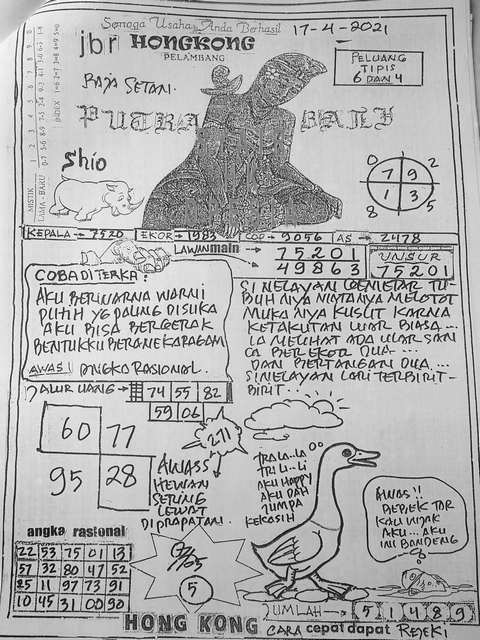 Semoga Usaha Anda Berhasil
17-4-2021
jbr HONGKONG
PELAMBANG
PELUANG
TIPIS
6 DAN 4
RAJA SETAN.
PUTRA BALI
Shio
0 2
7 9
1 3
8 5
MISTIK
LAMA - BARU
INDEX
KEPALA → 7520
EKOR → 1983
COP → 9056
AS → 2478
LAWANmain →
75201
49863
UNSUR
75201
COBA DITERKA:
AKU BERWARNA WARNI
PUTIH YG PALING DISUKA
AKU BISA BERGERAK
BENTUKKU BERANEKARAGAM
AWAS! ANGKA RASIONAL.
SI NELAYAN GEMETAR TU-
BUH NYA MATANYA MELOTOT
MUKA NYA KUSUT KARNA
KETAKUTAN LUAR BIASA...
IA MELIHAT ADA ULAR SAN
CA BEREKOR DUA...
DAN BERTANGAN DUA...
SI NELAYAN LARI TERBIRIT-
BIRIT..
JALUR UANG →
74 55 82
59 06
60 77
95 28
271
AWASS
HEWAN
SERING
LEWAT
DIPRAPATAN.
TRALA..LA
TRI LI..LI
AKU HAPPY
AKU DAH
JUMPA
KEKASIH
AWAS!!
BEBEK TAR
KAU INJAK
AKU... AKU
INI BANDENG
angka rasional
22 53 75 01 13
57 32 80 47 52
85 11 97 73 91
10 45 31 00 90
5
JUMLAH →
5 1 4 8 9
HONG KONG
CARA cepat dapat REJEKI